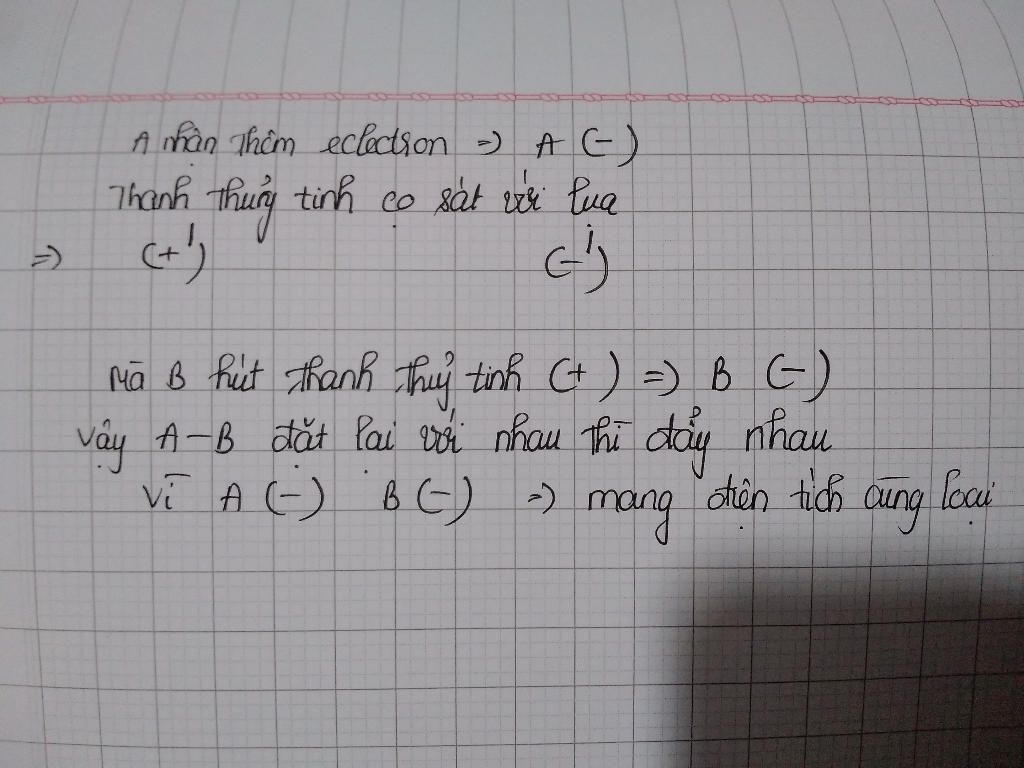 A nhận thêm eclection => A (-)
Thanh thuỷ tinh cọ sát với lụa
=> (+) (-)
Mà B hút thanh thuỷ tinh (+) => B (-)
Vậy A-B đặt lại với nhau thì đẩy nhau
Vì A (-) B (-) => mang điện tích cùng loại